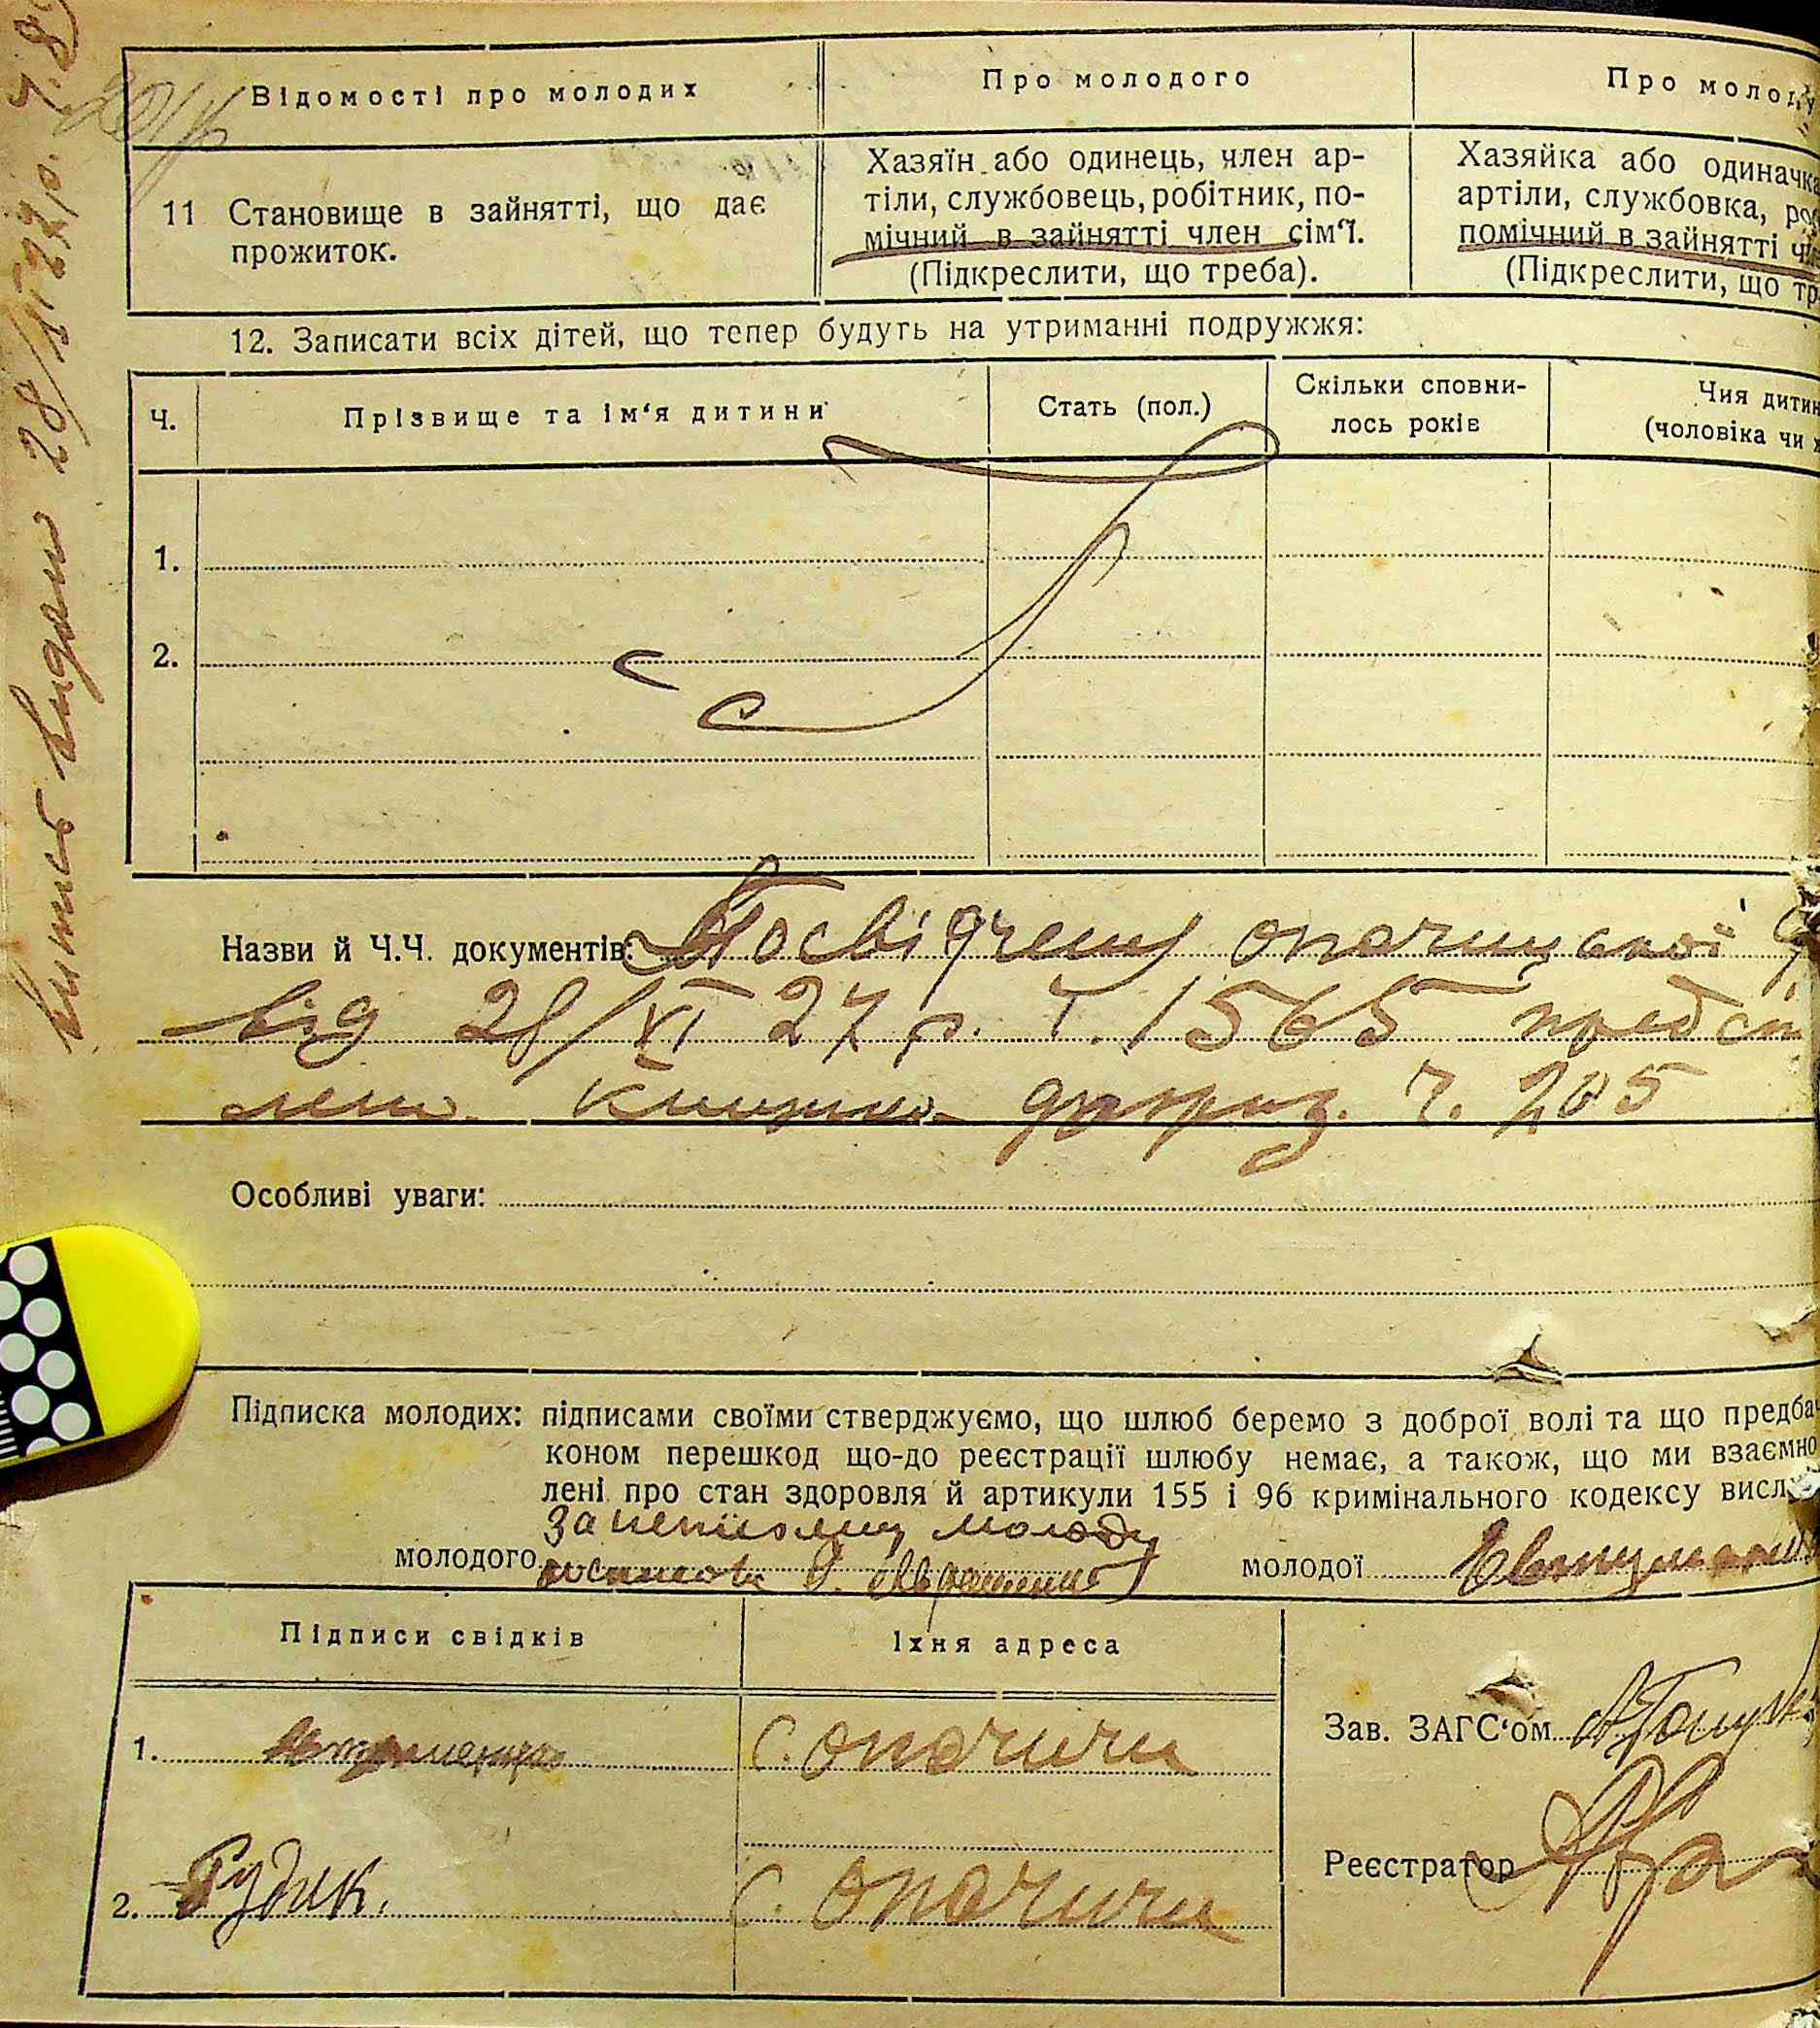 Відомості про молодих
Про молодого
Про молоду
11 Становище в зайнятті, що дає
прожиток.
Хазяїн або одинець, член ар-
тіли, службовець, робітник, по-
мічний в зайнятті член сім'ї.
(Підкреслити, що треба).
Хазяйка або одиначка
артіли, службовка, ро
помічний в зайнятті чл
(Підкреслити, що тр
12. Записати всіх дітей, що тепер будуть на утриманні подружжя:
Ч.
Прізвище та ім'я дитини
Стать (пол.)
Скільки сповни-
лось років
Чия дитин
(чоловіка чи ж
1.
2.
видано 28/XI 27 р.
Назви й Ч.Ч. документів: Посвідчення опачицької
від 28/XI 27 р. Ч. 1565 предст
книжка ч. 205
Особливі уваги:
Підписка молодих: підписами своїми стверджуємо, що шлюб беремо з доброї волі та що предба
коном перешкод що-до реєстрації шлюбу немає, а також, що ми взаємно
лені про стан здоровля й артикули 155 і 96 кримінального кодексу висл
За неписьмену молоду
молодого
молодої
Підписи свідків
Їхня адреса
1.
с. Опачичи
2. Рудик.
с. Опачичи
Зав. ЗАГС'ом
Реєстратор